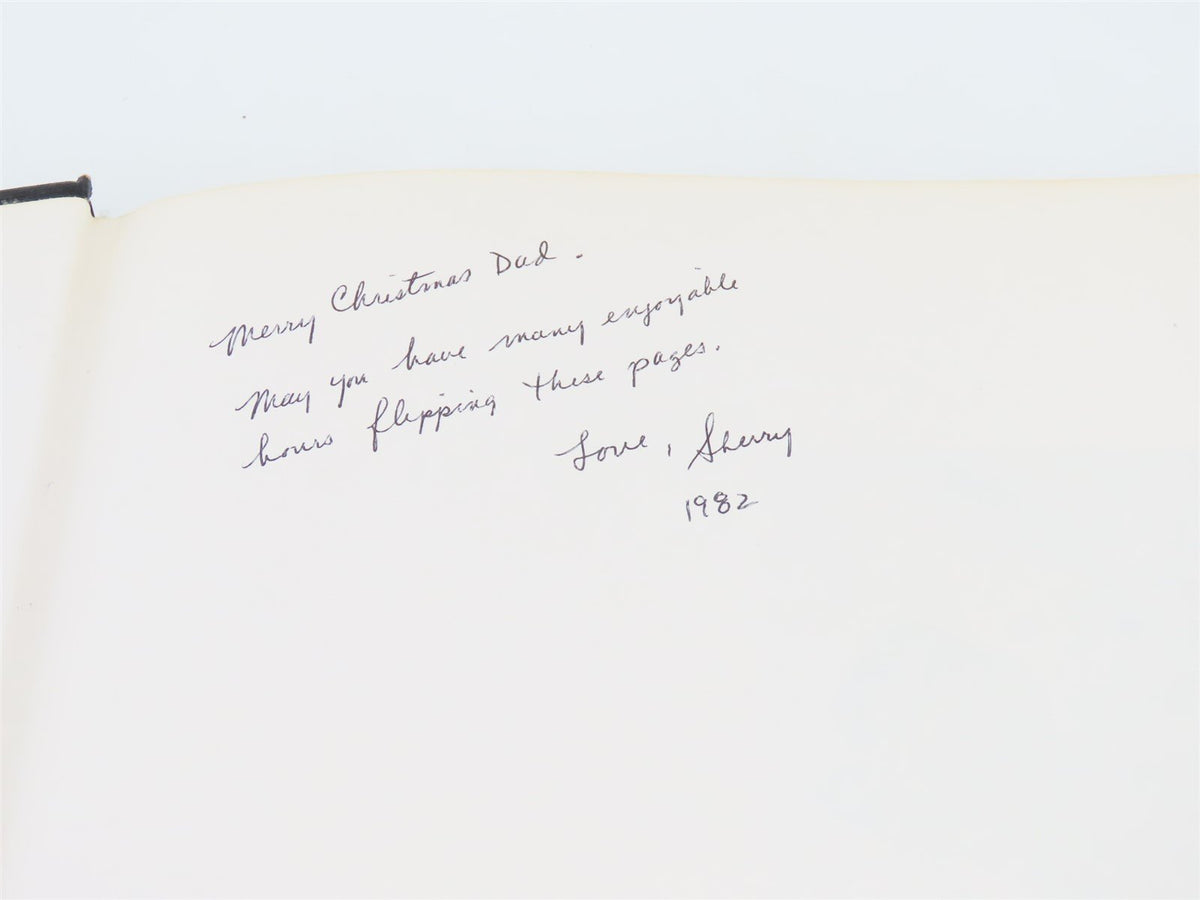 Merry Christmas Dad.
May you have many enjoyable
hours flipping these pages.
Love, Sherry
1982